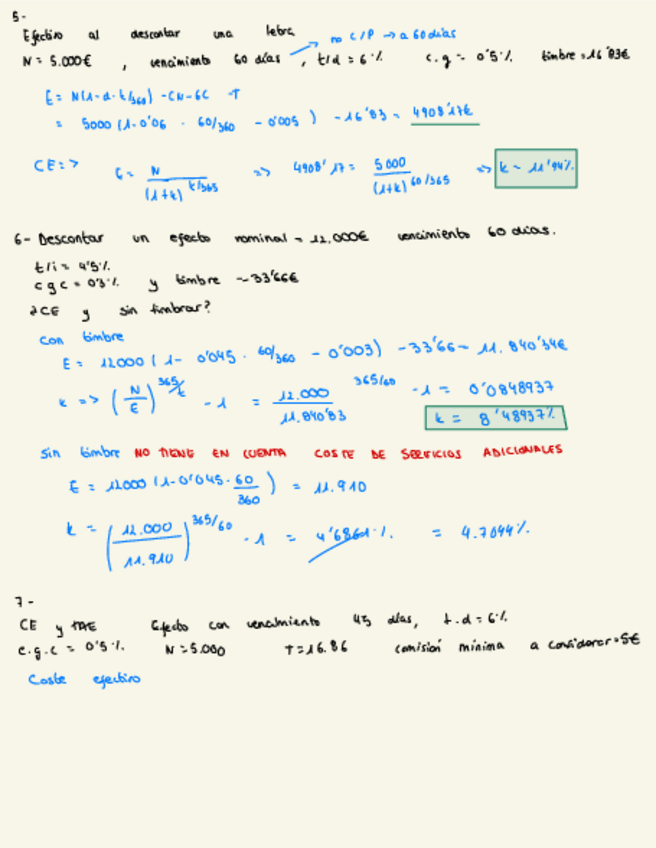 5-
Efectivo al descontar una letra → no C/P → a 60 días
N = 5.000€ , vencimiento 60 días , t/d = 6% c.g = 0'5% timbre = 16'83€
E = N(1-d·t/360) - CN - GC - T
= 5000 (1-0'06 · 60/360 - 0'005) - 16'83 = 4908'17€
CE => G = N/(1+k)^t/365 => 4908'17 = 5000/(1+k)^60/365 => k = 11'94%
6- Descontar un efecto nominal = 12.000€ vencimiento 60 días.
t/i = 4'5%
c g c = 0'3% y timbre = 33'66€
¿CE y sin timbrar?
Con timbre
E = 12000 (1 - 0'045 · 60/360 - 0'003) - 33'66 = 11.840'34€
k => (N/E)^365/t - 1 = 12.000/11.840'83^365/60 - 1 = 0'0848937
k = 8'48937%
Sin timbre NO TIENE EN CUENTA COSTE DE SERVICIOS ADICIONALES
E = 12000 (1-0'045·60/360) = 11.910
k = (12.000/11.910)^365/60 - 1 = 4'6861% = 4.7044%
7-
CE y TAE Efecto con vencimiento 45 días, t.d = 6%
c.g.c = 0'5% N = 5.000 T = 16.86 comisión mínima a considerar = 5€
Coste efectivo